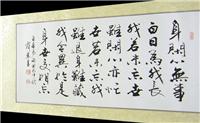 身閑心無事
白日為我長
我若未忘世
雖閑心亦忙
世若未忘我
雖退身難藏
我今異於是
身世交相忘